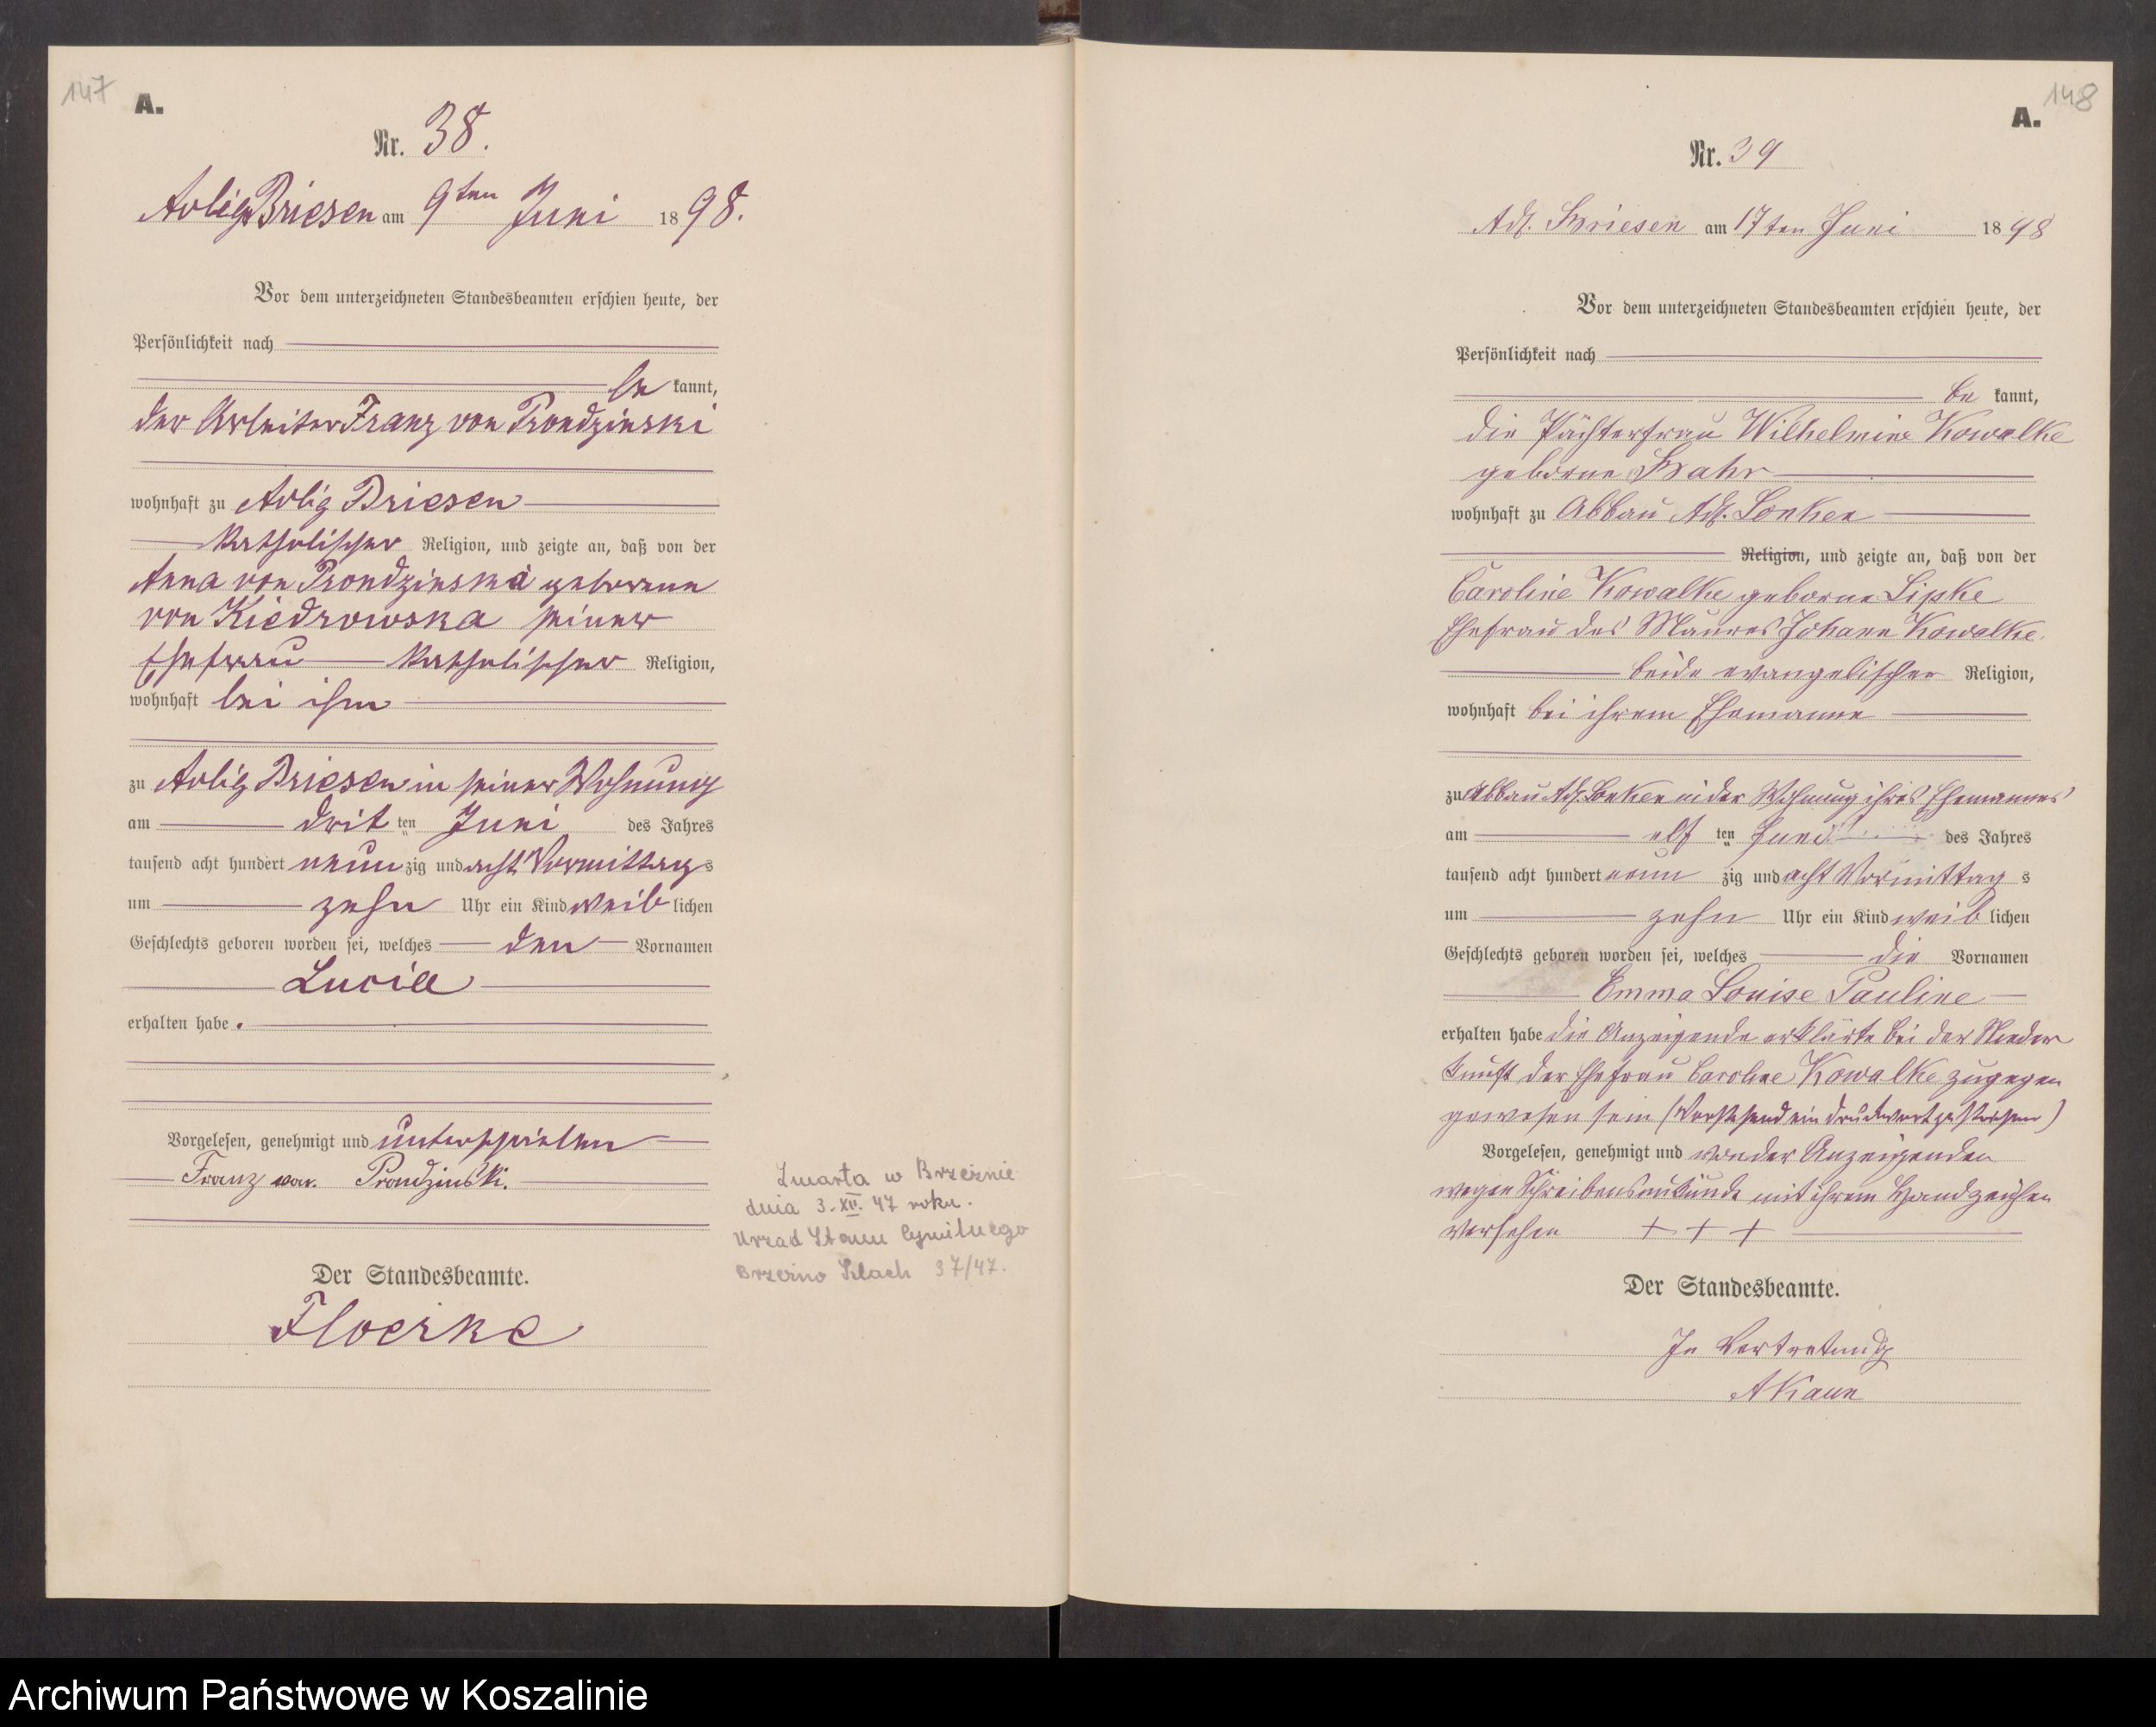 147
A.
Nr. 38.
Adlig Briesen am 9ten Juni 1898.
Vor dem unterzeichneten Standesbeamten erschien heute, der
Persönlichkeit nach
be kannt,
der Arbeiter Franz von Prondzinski
wohnhaft zu Adlig Briesen
katholischer Religion, und zeigte an, daß von der
Anna von Prondzinska geborene
von Kiedrowska seiner
Ehefrau katholischer Religion,
wohnhaft bei ihm
zu Adlig Briesen in seiner Wohnung
am drit ten Juni des Jahres
tausend acht hundert neun zig und acht Vormittag s
um zehn Uhr ein Kind weib lichen
Geschlechts geboren worden sei, welches den Vornamen
erhalten habe.
Vorgelesen, genehmigt und unterschrieben
Franz von Prondzinski.
Der Standesbeamte.
Floerke
Zmarła w Brzeźnie
dnia 3. XII. 47 roku.
Urząd Stanu Cywilnego
Brzeźno Szlach 37/47.
148
A.
Nr. 39
Adl. Briesen am 17ten Juni 1898
Vor dem unterzeichneten Standesbeamten erschien heute, der
Persönlichkeit nach
be kannt,
die Pächterfrau Wilhelmine Kowalke
geborne Bahr
wohnhaft zu Abbau Adl. Lonken
Religion, und zeigte an, daß von der
Caroline Kowalke geborne Lipke
Ehefrau des Maurers Johann Kowalke
beide evangelischer Religion,
wohnhaft bei ihrem Ehemanne
zu Abbau Adl. Lonken in der Wohnung ihres Ehemannes
am elf ten Juni des Jahres
tausend acht hundert neun zig und acht Vormittag s
um zehn Uhr ein Kind weib lichen
Geschlechts geboren worden sei, welches die Vornamen
Emma Louise Pauline
erhalten habe die Anzeigende erklärte bei der Nieder
kunft der Ehefrau Caroline Kowalke zugegen
gewesen sein (Vorstehend ein Druckwort gestrichen)
Vorgelesen, genehmigt und von der Anzeigenden
wegen Schreibensunkunde mit ihrem Handzeichen
versehen + + +
Der Standesbeamte.
In Vertretung
Archiwum Państwowe w Koszalinie